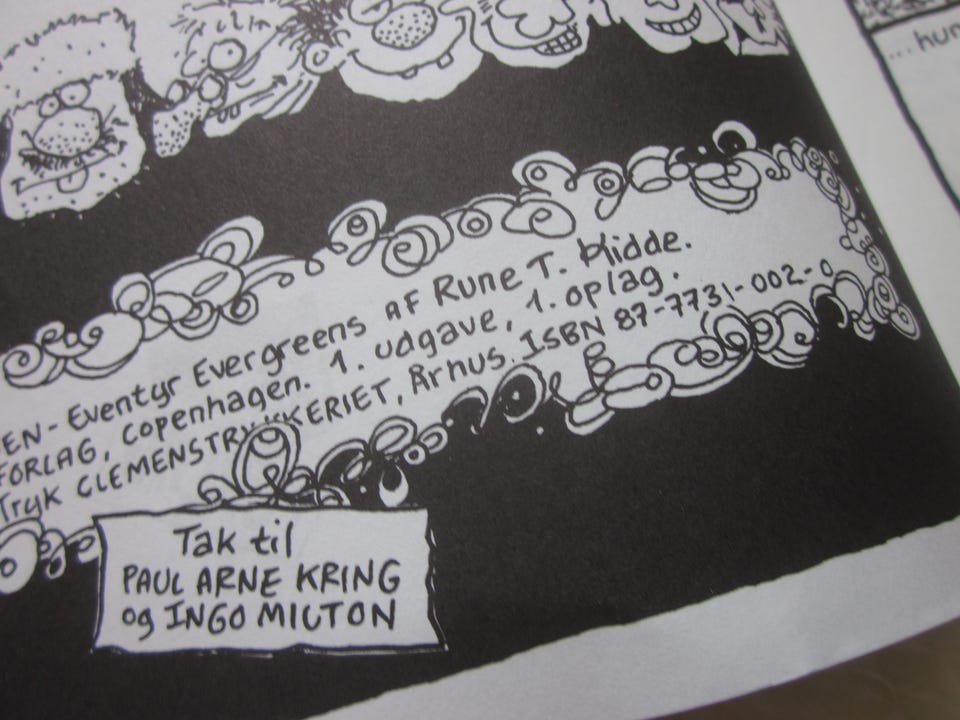 EN - Eventyr Evergreens AF Rune T. Kidde.
FORLAG, copenhagen. 1. udgave, 1. oplag.
Tryk CLEMENSTRYKKERIET, Århus. ISBN 87-7731-002-0
Tak til
PAUL ARNE KRING
og INGO MILTON
...hum